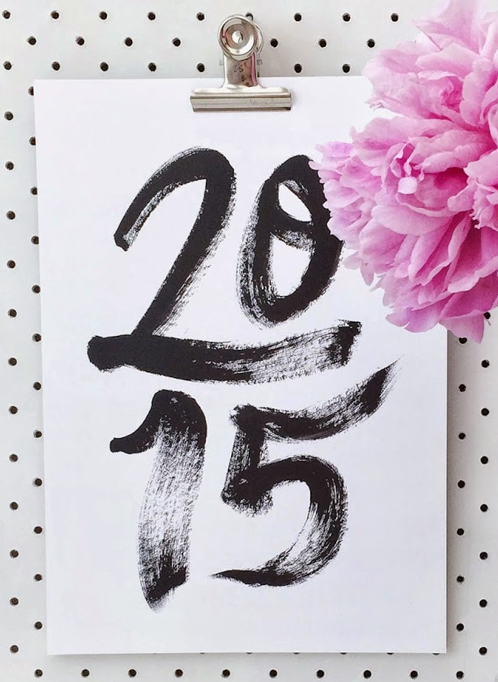 20
15